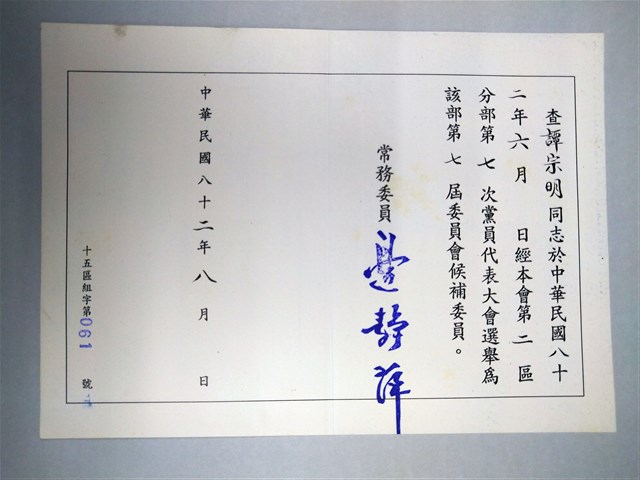 查譚宗明同志於中華民國八十
二年六月 日經本會第二區
分部第七次黨員代表大會選舉為
該部第七屆委員會候補委員。
常務委員
中華民國八十二年八月 日
十五區組字第061 號